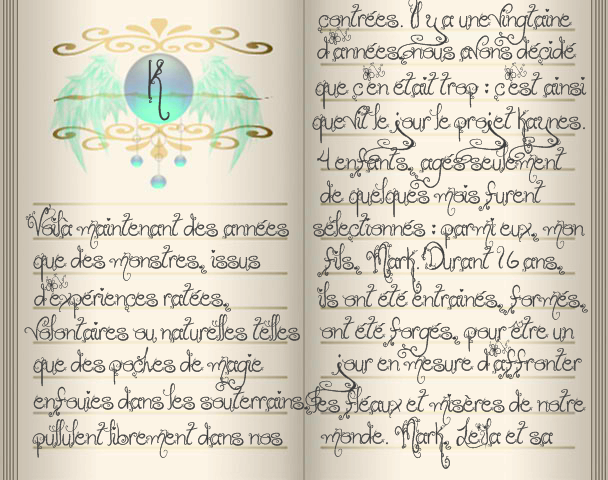 K
Voilà maintenant des années
que des monstres, issus
d'expériences ratées,
volontaires ou naturelles telles
que des poches de magie
enfouies dans les souterrains,
pullulent librement dans nos
contrées. Il y a une vingtaine
d'années, nous avons décidé
que c'en était trop : c'est ainsi
que vit le jour le projet Kaynes.
4 enfants, agés seulement
de quelques mois furent
sélectionnés : parmi eux, mon
fils, Mark. Durant 16 ans,
ils ont été entrainés, formés,
ont été forgés, pour être un
jour en mesure d'affronter
les fléaux et misères de notre
monde. Mark, Leïla et sa